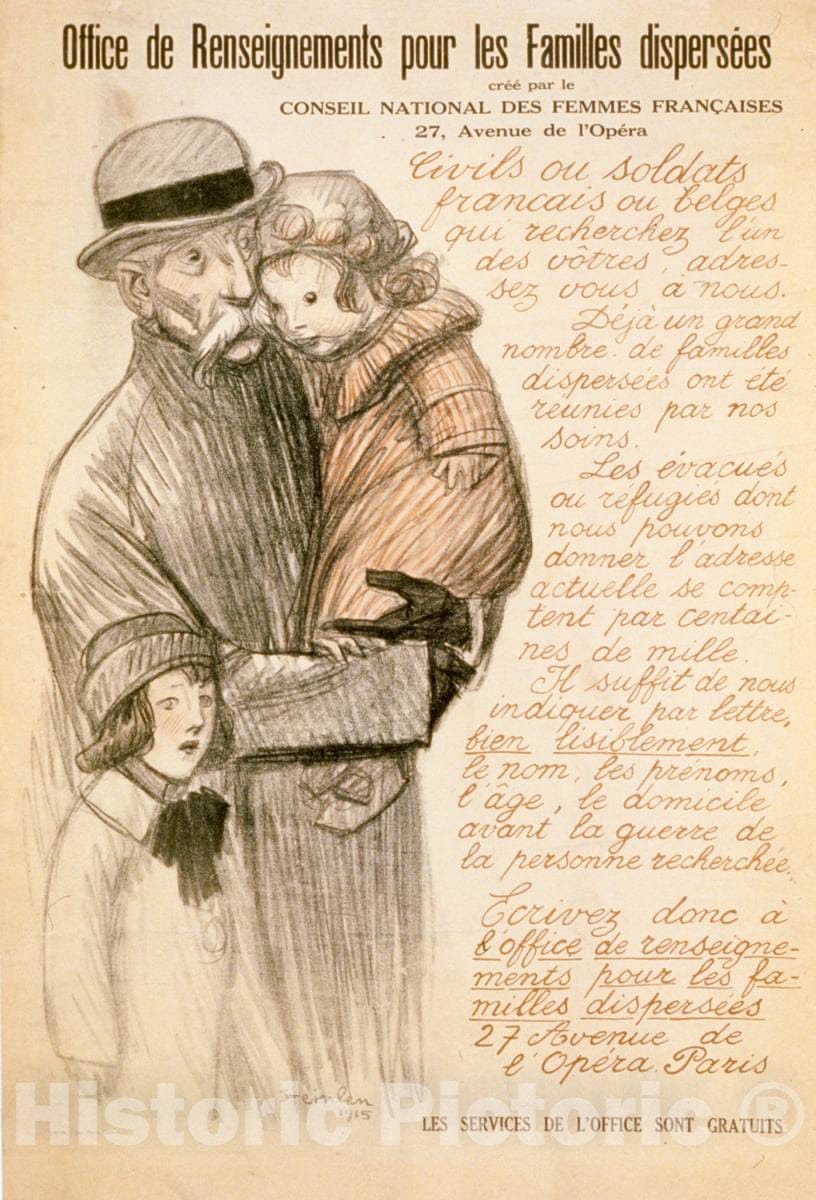 Office de Renseignements pour les Familles dispersées
créé par le
CONSEIL NATIONAL DES FEMMES FRANÇAISES
27, Avenue de l'Opéra
Civils ou soldats
francais ou belges
qui recherchez l'un
des vôtres, adres-
sez vous à nous.
Déjà un grand
nombre de familles
dispersées ont été
réunies par nos
soins.
Les évacués
ou réfugiés dont
nous pouvons
donner l'adresse
actuelle se comp-
tent par centai-
nes de mille.
Il suffit de nous
indiquer par lettre,
bien lisiblement,
le nom, les prénoms,
l'âge, le domicile
avant la guerre de
la personne recherchée.
Ecrivez donc à
l'office de renseigne-
ments pour les fa-
milles dispersées
27 Avenue de
l'Opéra. Paris
Steinlen
1915
Historic Pictoric ®
LES SERVICES DE L'OFFICE SONT GRATUITS